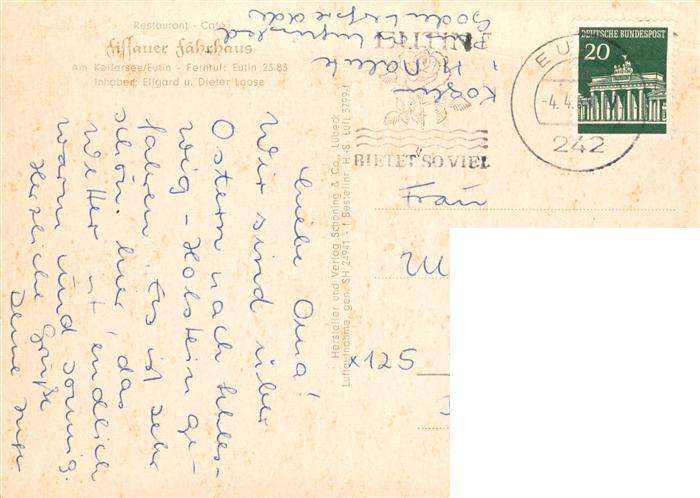 Restaurant - Café
Fissauer Fährhaus
Am Kellersee/Eutin - Fernruf: Eutin 23 83
Inhaber: Effgard u. Dieter Loose
Liebe Oma!
Wir sind über
Ostern nach Schles-
wig-Holstein ge-
fahren. Es ist sehr
schön hier, das
Wetter ist endlich
warm und sonnig.
Herzliche Grüße
Deine
Hersteller und Verlag Schöning & Co., Lübeck
Luftaufnahme, gen. SH 24941 - 1 Bestellnr. H.-S. Luft 3799-f
EUTIN
BIETET SO VIEL
EUTIN
-4.4.
242
DEUTSCHE BUNDESPOST
20
Frau
x125